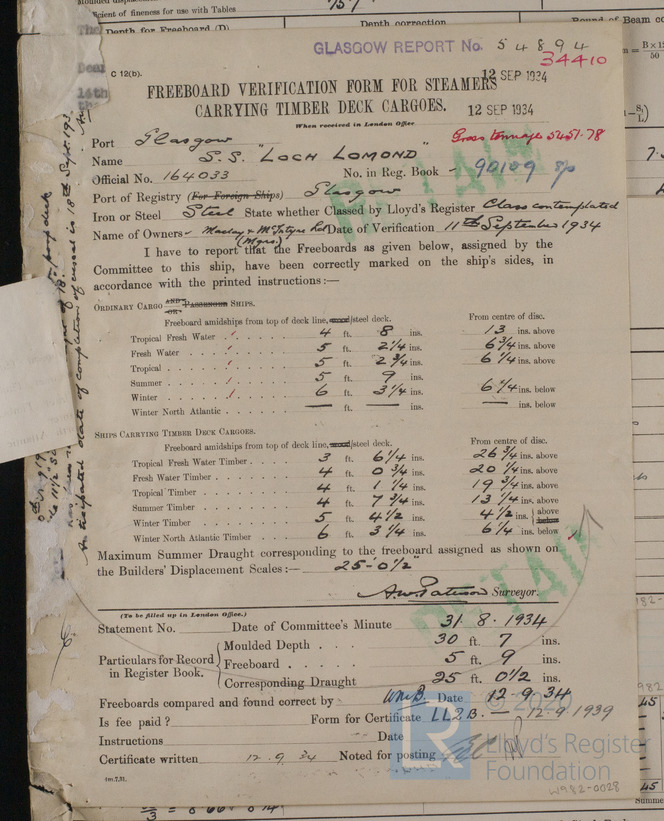 efficient of fineness for use with Tables
Depth for Freeboard (D)
Depth correction
Round of Beam
GLASGOW REPORT No. 54894
34410
C 12(b).
12 SEP 1934
FREEBOARD VERIFICATION FORM FOR STEAMERS
CARRYING TIMBER DECK CARGOES.
12 SEP 1934
When received in London Office
Port Glasgow
Gross tonnage 5451.78
Name S.S. "LOCH LOMOND"
Official No. 164033 No. in Reg. Book - 90109
Port of Registry (For Foreign Ships) Glasgow
Iron or Steel Steel State whether Classed by Lloyd's Register Class contemplated
Name of Owners - Maclay & McIntyre Ltd (Mgrs.) Date of Verification 11th September 1934
I have to report that the Freeboards as given below, assigned by the
Committee to this ship, have been correctly marked on the ship's sides, in
accordance with the printed instructions:—
ORDINARY CARGO AND OR PASSENGER SHIPS.
Freeboard amidships from top of deck line, wood/steel deck. From centre of disc.
Tropical Fresh Water 4 ft. 8 ins. 13 ins. above
Fresh Water 5 ft. 2 1/4 ins. 6 3/4 ins. above
Tropical 5 ft. 2 3/4 ins. 6 1/4 ins. above
Summer 5 ft. 9 ins.
Winter 6 ft. 3 1/4 ins. 6 1/4 ins. below
Winter North Atlantic — ft. — ins. — ins. below
SHIPS CARRYING TIMBER DECK CARGOES.
Freeboard amidships from top of deck line, wood/steel deck. From centre of disc.
Tropical Fresh Water Timber 3 ft. 6 1/4 ins. 26 3/4 ins. above
Fresh Water Timber 4 ft. 0 3/4 ins. 20 1/4 ins. above
Tropical Timber 4 ft. 1 1/4 ins. 19 3/4 ins. above
Summer Timber 4 ft. 7 3/4 ins. 13 1/4 ins. above
Winter Timber 5 ft. 4 1/2 ins. 4 1/2 ins. above below
Winter North Atlantic Timber 6 ft. 3 1/4 ins. 6 1/4 ins. below
Maximum Summer Draught corresponding to the freeboard assigned as shown on
the Builders' Displacement Scales:— 25'-0 1/2"
A.W. Paterson Surveyor.
(To be filled up in London Office.)
Statement No. Date of Committee's Minute 31.8.1934
Particulars for Record in Register Book.
Moulded Depth 30 ft. 7 ins.
Freeboard 5 ft. 9 ins.
Corresponding Draught 25 ft. 0 1/2 ins.
Freeboards compared and found correct by WMB. Date 12.9.34
Is fee paid? Form for Certificate LL2B. — 12.9.1939
Instructions Date
Certificate written 12.9.34 Noted for posting
4m.7,31.
© 2020
LR
Lloyd's Register
Foundation
W982-0028